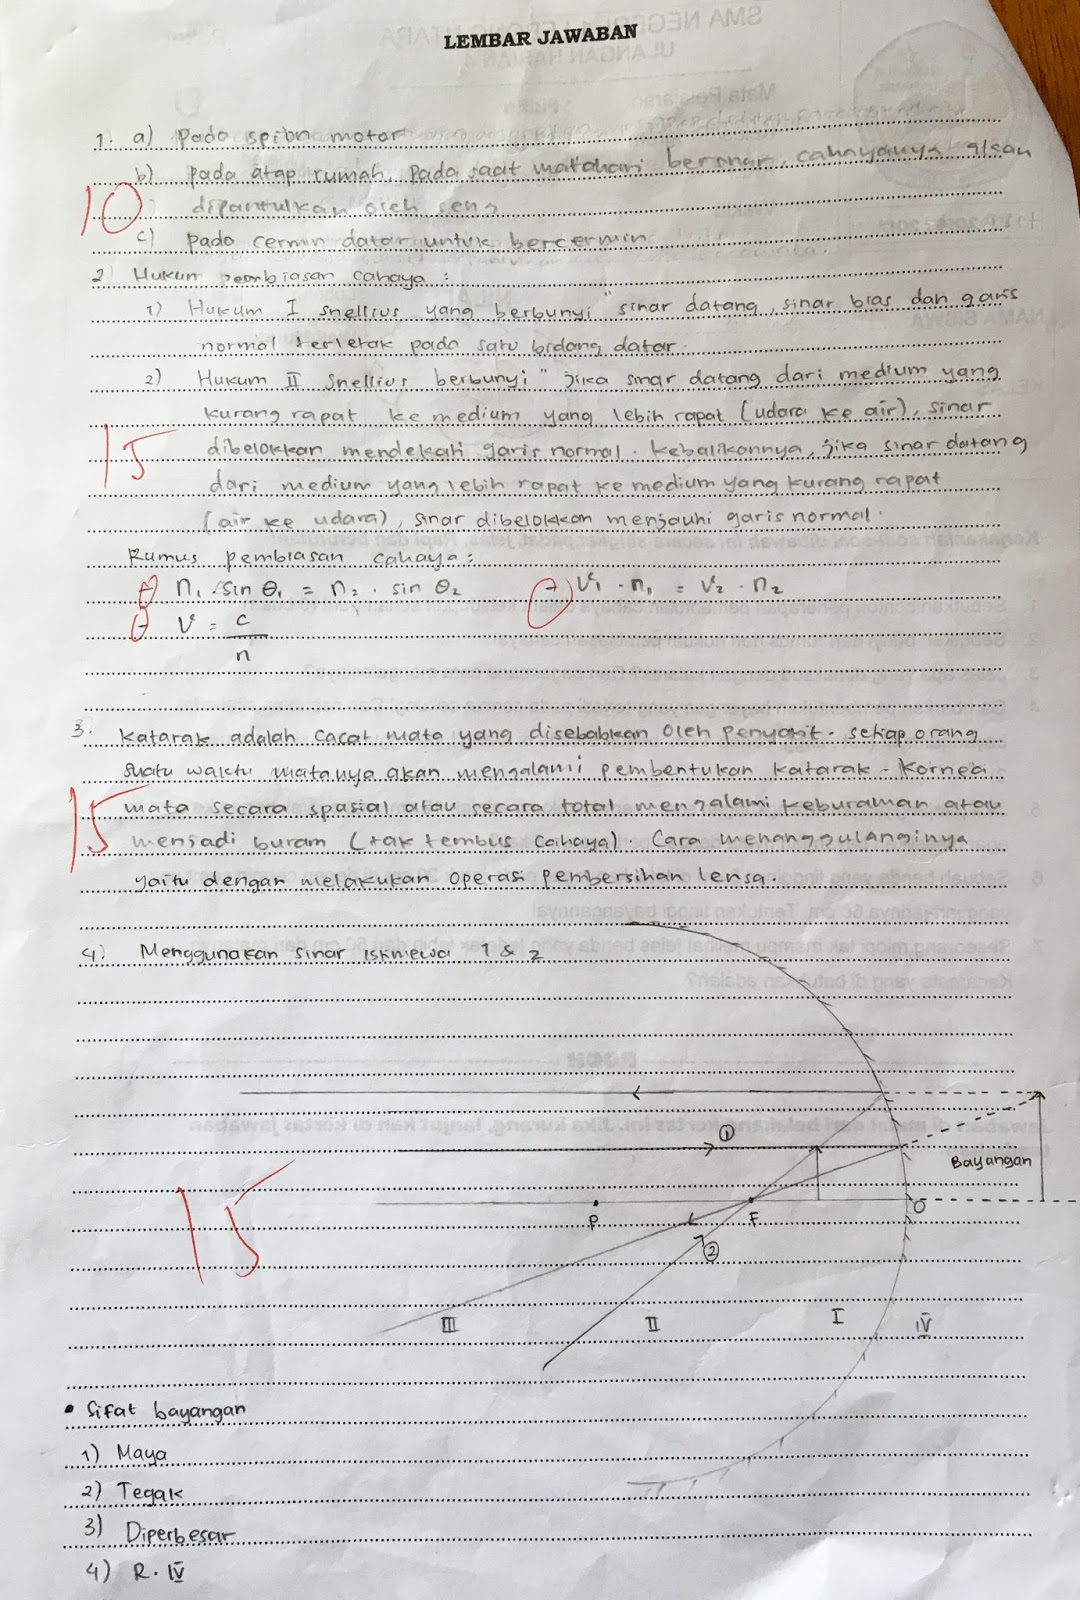 LEMBAR JAWABAN
1. a) Pada spion motor
b) pada atap rumah, pada saat matahari bersinar, cahayanya akan
10
dipantulkan oleh seng
c) pada cermin datar untuk bercermin
2 Hukum pembiasan cahaya :
1) Hukum I snellius yang berbunyi "sinar datang, sinar bias dan garis
normal terletak pada satu bidang datar.
2) Hukum II Snellius berbunyi "jika sinar datang dari medium yang
kurang rapat ke medium yang lebih rapat (udara ke air), sinar
15 dibelokkan mendekati garis normal. kebalikannya, jika sinar datang
dari medium yang lebih rapat ke medium yang kurang rapat
(air ke udara), sinar dibelokkan menjauhi garis normal.
Rumus pembiasan cahaya :
→ n₁ . sin θ₁ = n₂ . sin θ₂ → V₁ . n₁ = V₂ . n₂
→ V = c
n
3. Katarak adalah cacat mata yang disebabkan oleh penyakit. setiap orang
suatu waktu matanya akan mengalami pembentukan katarak - Kornea
15 mata secara spasial atau secara total mengalami keburaman atau
menjadi buram (tak tembus cahaya). Cara menanggulanginya
yaitu dengan melakukan operasi pembersihan lensa.
4) Menggunakan sinar istimewa 1 & 2
①
Bayangan
15
P F O
②
III II I IV
• Sifat bayangan
1) Maya
2) Tegak
3) Diperbesar
4) R. IV